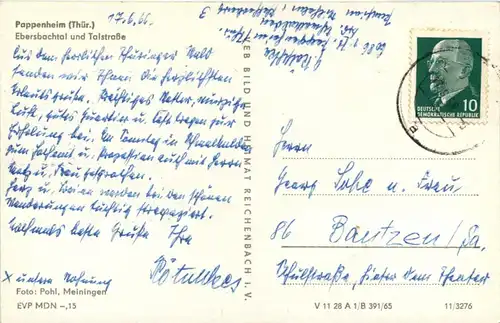 Pappenheim (Thür.)
Ebersbachtal und Talstraße
17.6.66.
Aus dem herrlichen Thüringer Wald
senden wir Ihnen die herzlichsten
Urlaubsgrüße. Prächtiges Wetter, würzige
Luft, gutes Quartier u. Essen tragen zur
Erholung bei. Am Sonntag in Schmalkalden
zum Hochamt u. Prozession auch mit Herrn
u. Frau gesprochen.
Herz u. werden bei den schönen
Wanderungen tüchtig strapaziert.
Nochmals beste Grüße Ihre
x unsere Wohnung
Foto: Pohl, Meiningen
EVP MDN -,15
VEB BILD UND HEIMAT REICHENBACH I. V.
DEUTSCHE
DEMOKRATISCHE REPUBLIK
10
Herrn
Georg u. Frau
86 Bautzen/Sa.
Schulstraße, hinter dem Theater
V 11 28 A 1/B 391/65
11/3276